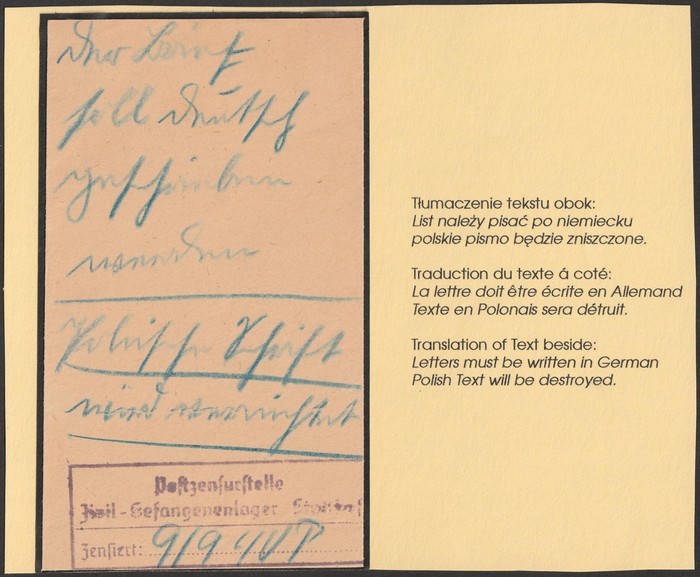 Der Brief
soll deutsch
geschrieben
werden
Polnische Schrift
wird vernichtet
Postzensurstelle
Zivil-Gefangenenlager
Zensiert: 9/9 41
Tłumaczenie tekstu obok:
List należy pisać po niemiecku
polskie pismo będzie zniszczone.
Traduction du texte á coté:
La lettre doit être écrite en Allemand
Texte en Polonais sera détruit.
Translation of Text beside:
Letters must be written in German
Polish Text will be destroyed.